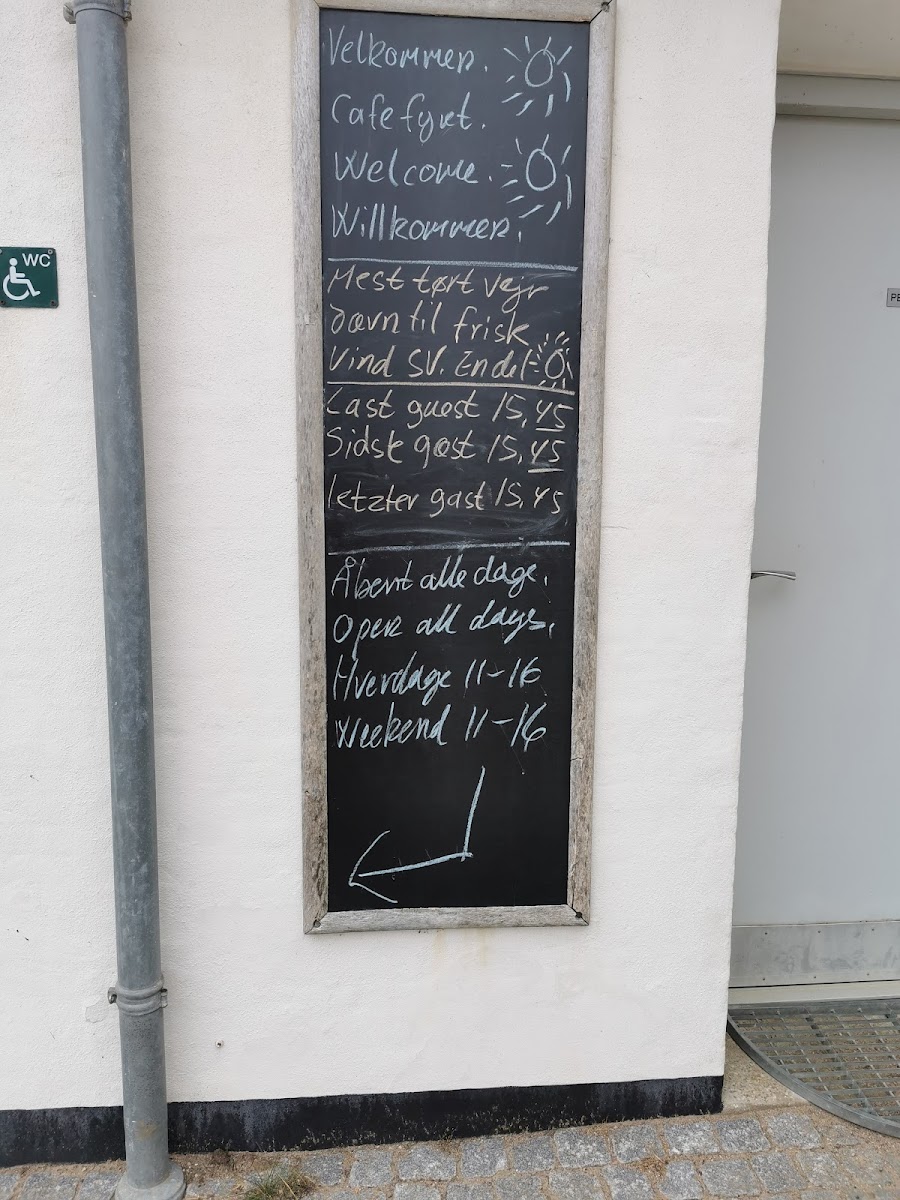 Velkommen.
Cafe fyret.
Welcome.
Willkommen.
Mest tørt vejr
Jævn til frisk
Vind SV. En del
Last guest 15,45
Sidste gæst 15,45
letzter gast 15,45
Åbent alle dage.
Open all days.
Hverdage 11-16
Weekend 11-16
WC
PE